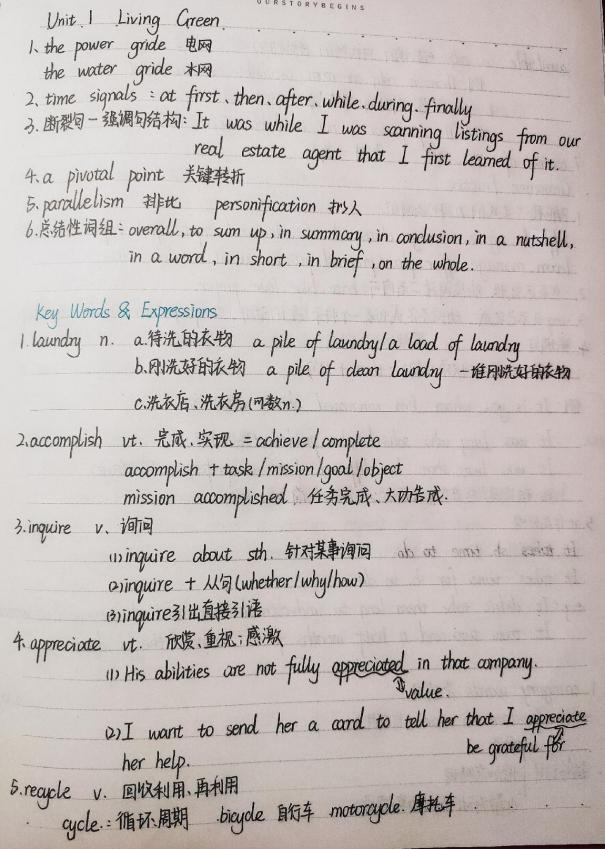 OURSTORYBEGINS
Unit 1 Living Green
1、the power gride 电网
the water gride 水网
2、time signals：at first、then、after、while、during、finally
3、断裂句－强调句结构：It was while I was scanning listings from our
real estate agent that I first learned of it.
4、a pivotal point 关键转折
5、parallelism 排比 personification 拟人
6、总结性词组：overall, to sum up, in summary, in conclusion, in a nutshell,
in a word, in short, in brief, on the whole.
Key Words & Expressions
1.laundry n. a.待洗的衣物 a pile of laundry/a load of laundry
b.刚洗好的衣物 a pile of clean laundry 一堆刚洗好的衣物
c.洗衣店、洗衣房(可数n.)
2.accomplish vt. 完成、实现 = achieve/complete
accomplish + task/mission/goal/object
mission accomplished 任务完成、大功告成.
3.inquire v、询问
(1)inquire about sth. 针对某事询问
(2)inquire + 从句(whether/why/how)
(3)inquire引出直接引语
4.appreciate vt. 欣赏、重视；感激
(1) His abilities are not fully appreciated in that company.
value.
(2)I want to send her a card to tell her that I appreciate
be grateful for
her help.
5.recycle v. 回收利用、再利用
cycle.：循环、周期 bicycle 自行车 motorcycle. 摩托车